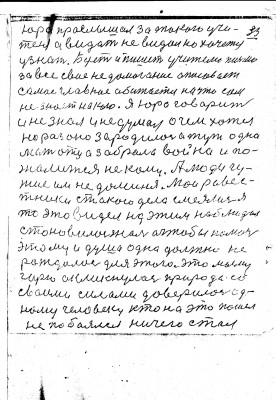 Юра прослышал за такого учи-
теля видат не видал но хочет
узнат. Будто и пишет учителю письмо
за все свое недомогание описывает
самое главное обитости на что сам
не знает какую. Я Юра говорит
и не знал и не думал о чем хотел
но разоно зародилось а тут одна
мать отца забрала война и по-
жалится не кому. А люди чу-
жие им не до меня. Мои ровес-
ники с такого дела смеялися
то это видел над этим наблюдал
становилось жалко чтобы помоч
этому и душа одна должно не
раждалос для этого. Это моему
горю откликнулас природа со
своими силами доверилос од-
ному человеку кто на это пошел
не побаялся ничего стал